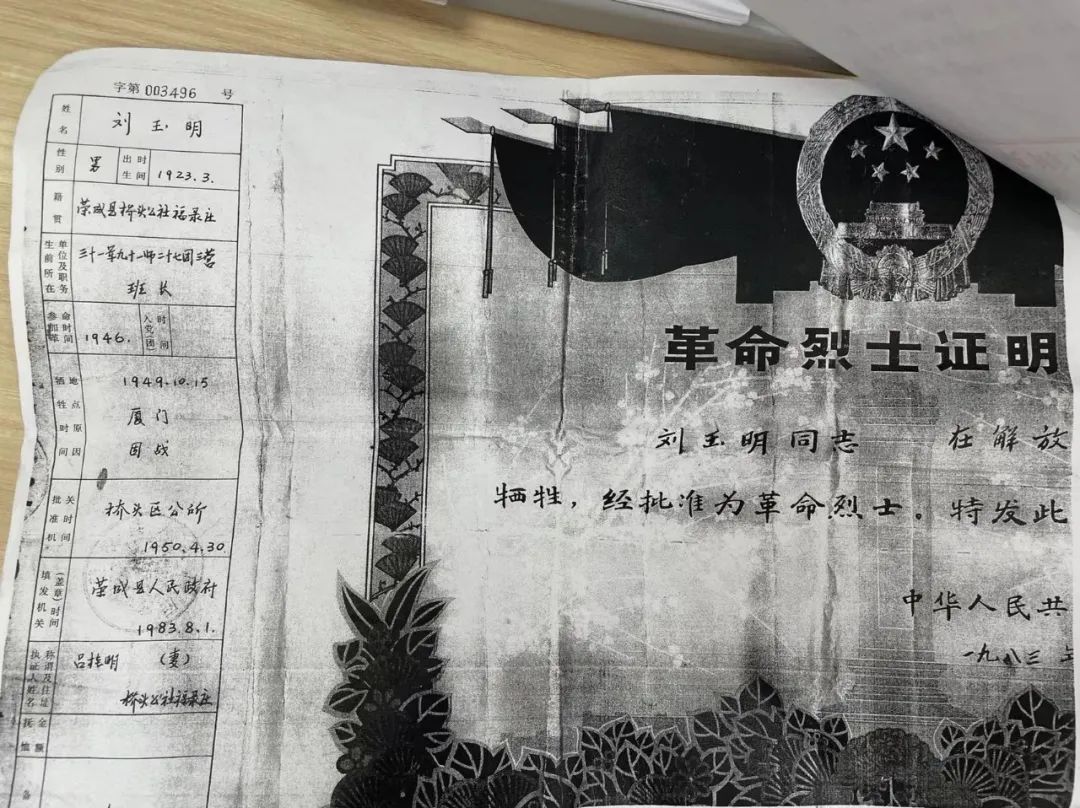 字第003496 号
姓名 刘玉明
性别 男 出生时间 1923.3.
籍贯 荣成县桥头公社福录庄
生前所在单位及职务 三十一军九十一师二十七团三营
班长
参加革命时间 1946. 入党(团)时间
牺牲时间地点原因 1949.10.15
厦门
作战
批准机关时间 桥头区公所
1950.4.30
填发机关(盖章)时间 荣成县人民政府
1983.8.1.
执证人姓名称谓及住址 吕桂明 (妻)
桥头公社福录庄
抚恤金额
备
革命烈士证明
刘玉明同志 在解放
牺牲,经批准为革命烈士。特发此
中华人民共
一九八三年